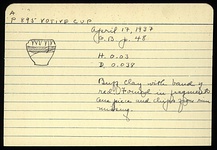 A
P 895 VOTIVE CUP
April 17, 1937
P.B. p. 48
H. 0.03
D. 0.038
Buff clay with band of
red. Found in fragments
one piece and chips from rim
missing.